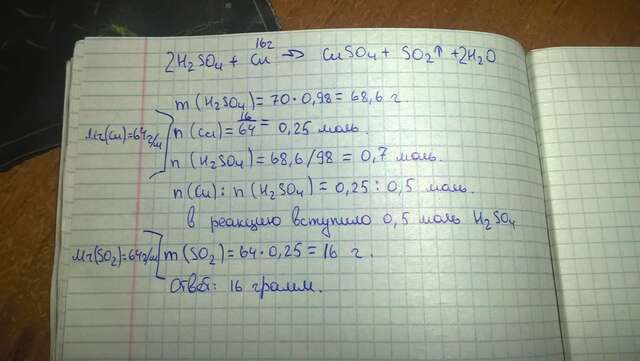 16г
2H₂SO₄ + Cu → CuSO₄ + SO₂↑ + 2H₂O
m (H₂SO₄) = 70 · 0,98 = 68,6 г.
Mr(Cu)=64г/м
n (Cu) = 16/64 = 0,25 моль.
n (H₂SO₄) = 68,6 / 98 = 0,7 моль.
n (Cu) : n (H₂SO₄) = 0,25 : 0,5 моль.
в реакцию вступило 0,5 моль H₂SO₄
Mr(SO₂)=64г/м
m (SO₂) = 64 · 0,25 = 16 г.
Ответ: 16 грамм.